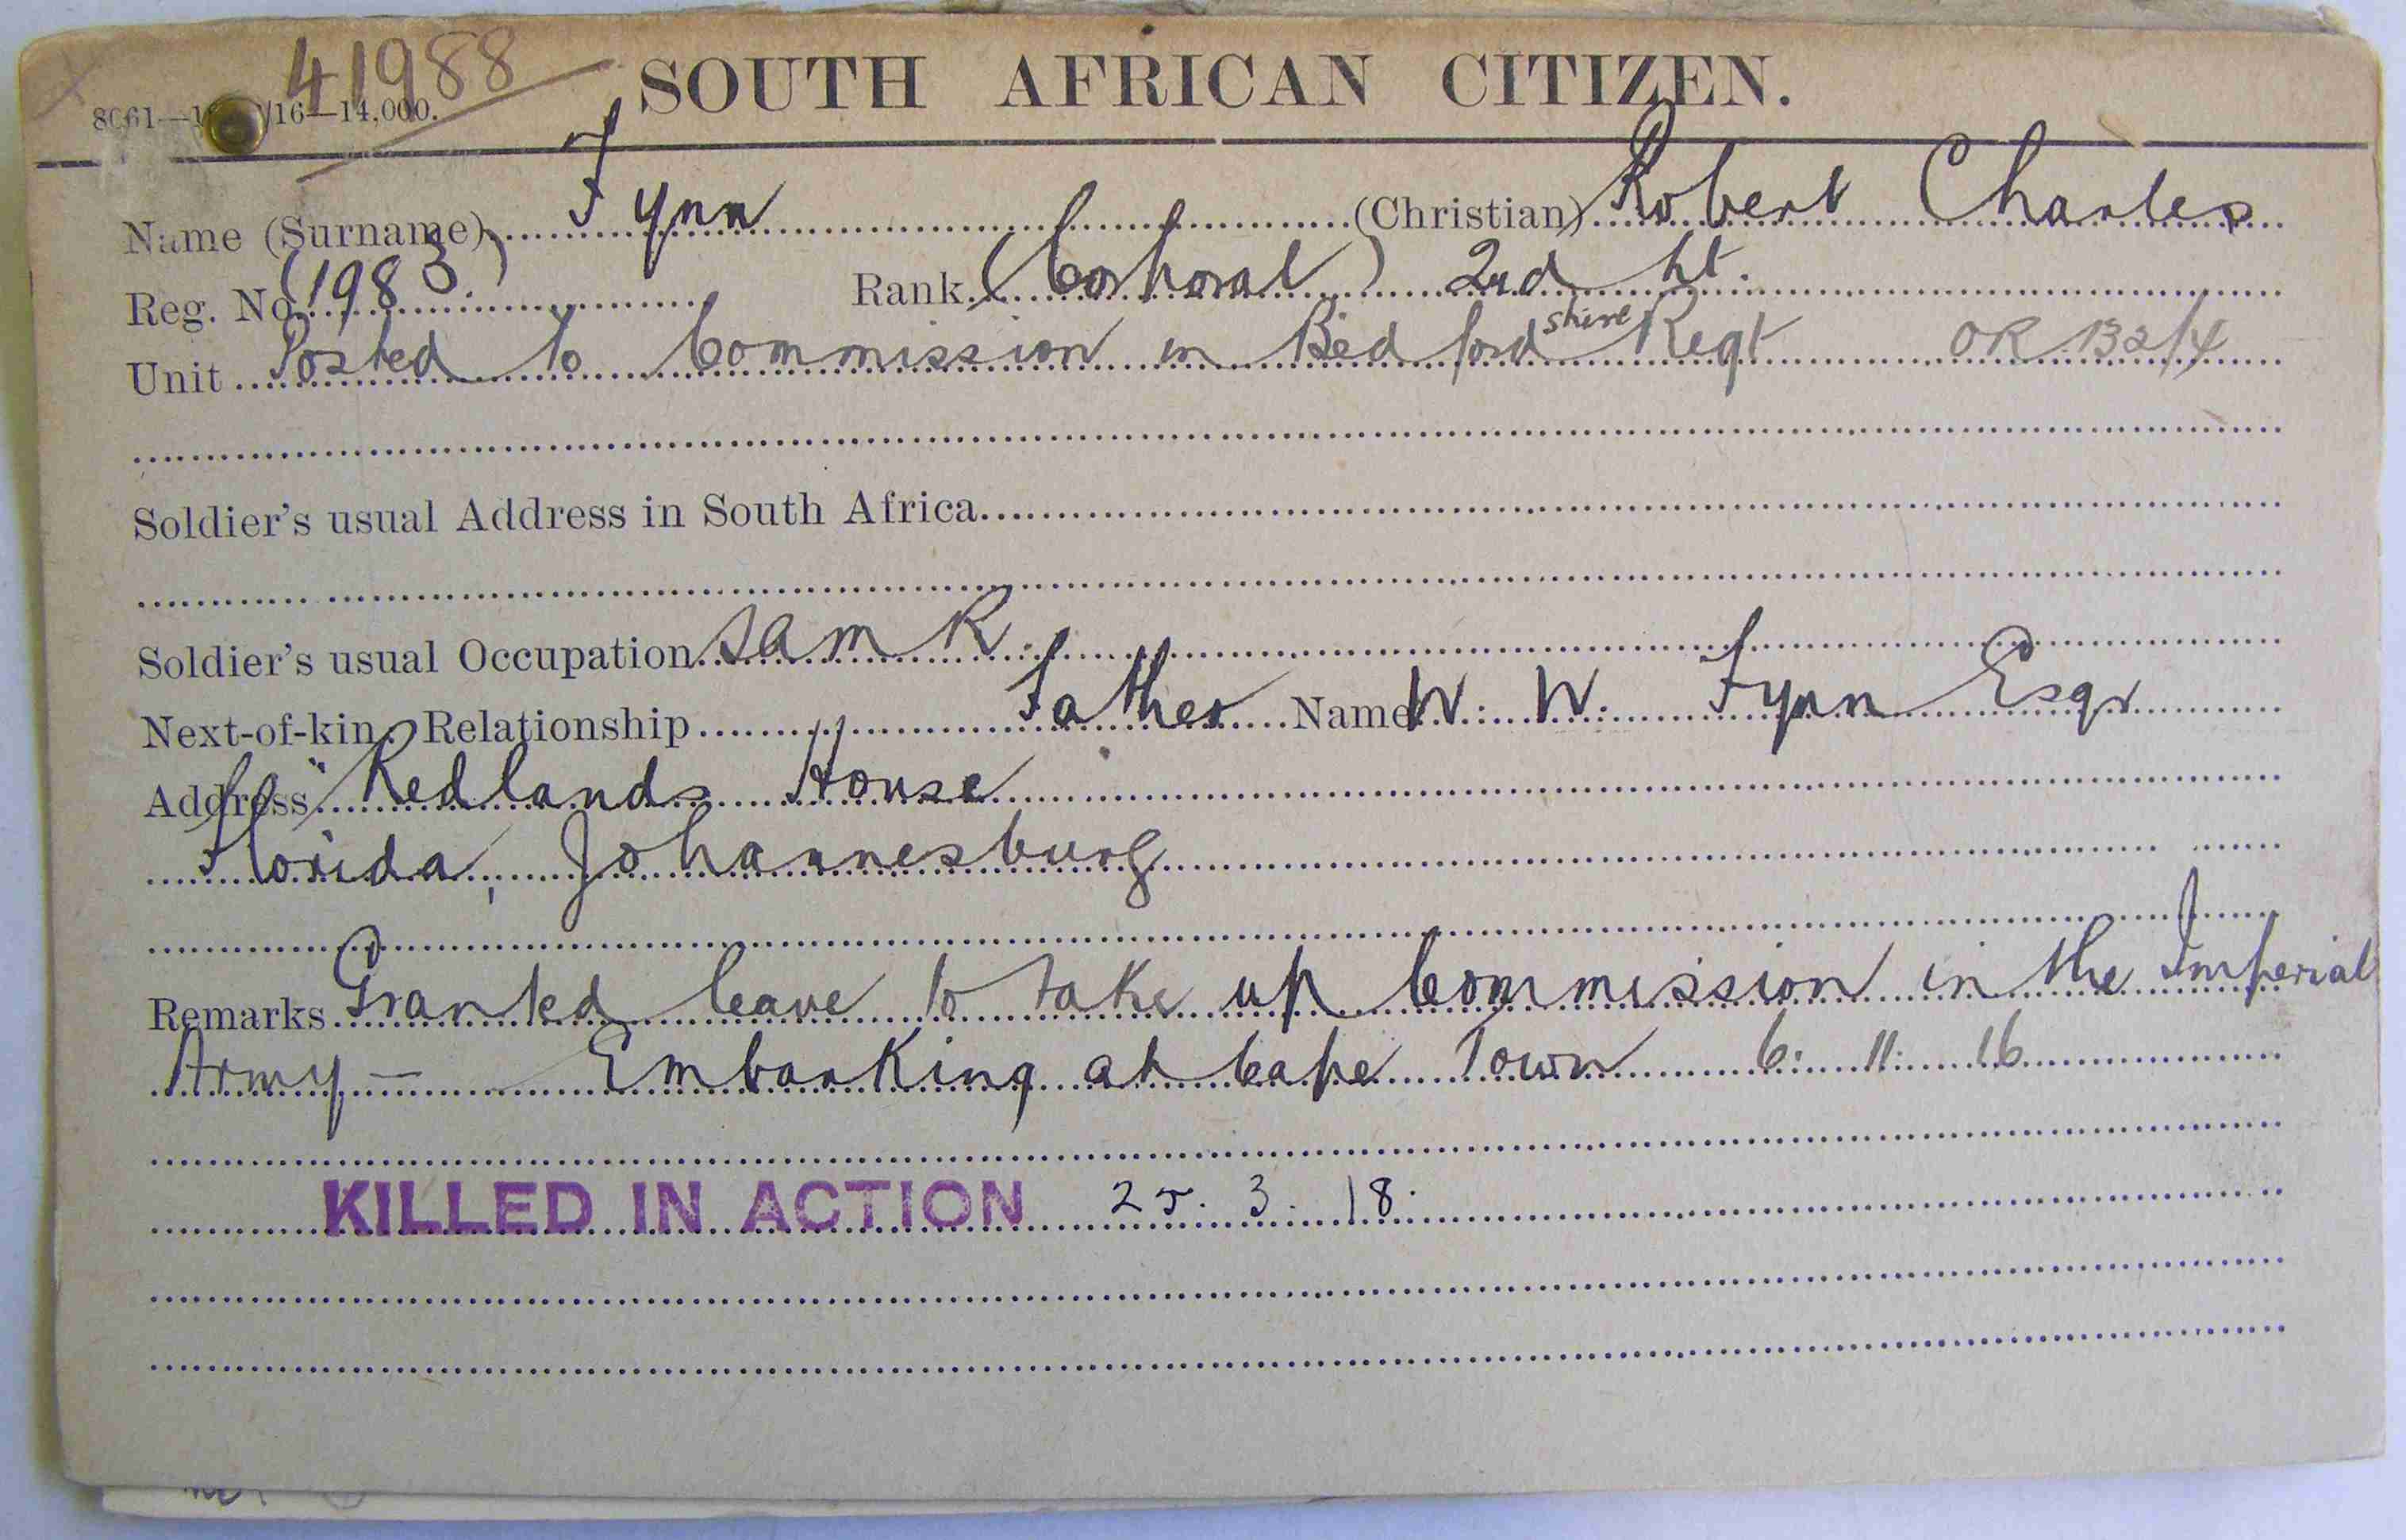 41988
SOUTH AFRICAN CITIZEN.
16—14,000.
Name (Surname) Fynn (Christian) Robert Charles
Reg. No. (1983) Rank (Corporal) 2nd Lt.
Unit Posted to Commission in Bedfordshire Regt OR 132/4
Soldier's usual Address in South Africa
Soldier's usual Occupation S A M R.
Next-of-kin, Relationship Father Name W. W. Fynn Esqr
Address "Redlands House
Florida, Johannesburg
Remarks Granted leave to take up Commission in the Imperial
Army — Embarking at Cape Town 6. 11. 16
KILLED IN ACTION 25. 3. 18.